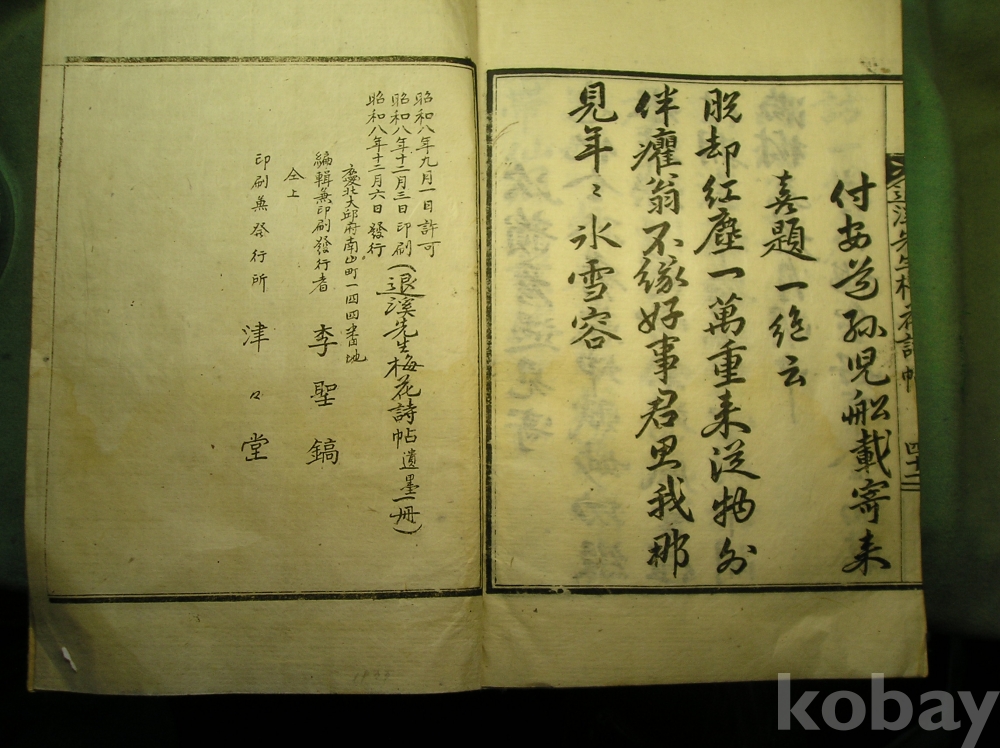 付安道孫兒船載寄来
喜題一絶云
脫却紅塵一萬重来從物外
伴癯翁不緣好事君思我那
見年〻氷雪容
退溪先生梅花詩帖
四十二
昭和八年九月一日許可
昭和八年十二月三日印刷(退溪先生梅花詩帖遺墨一冊)
昭和八年十二月六日發行
慶北大邱府南山町一四四番地
編輯兼印刷發行者 李聖鎬
仝上
印刷兼發行所 津々堂
1933
kobay